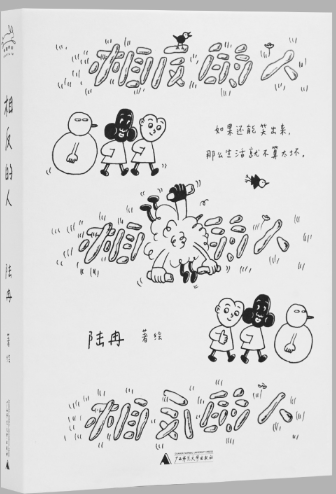 相反的人
如果还能笑出来,
那么生活就不算太坏。
相反的人
陆冉 著绘
相反的人
广西师范大学出版社
相反的人
陆冉
著绘